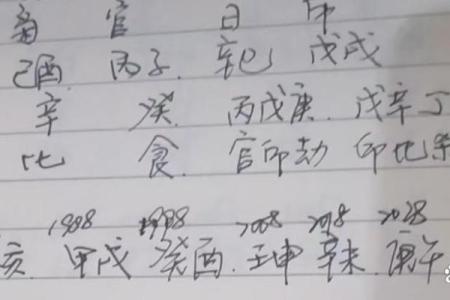 官 日 印
己酉 丙子 辛巳 戊戌
辛 癸 丙戊庚 戊辛丁
比 食 官印劫 印比杀
1988 1998 2008 2018 2028
亥 甲戌 癸酉 壬申 辛未 庚午